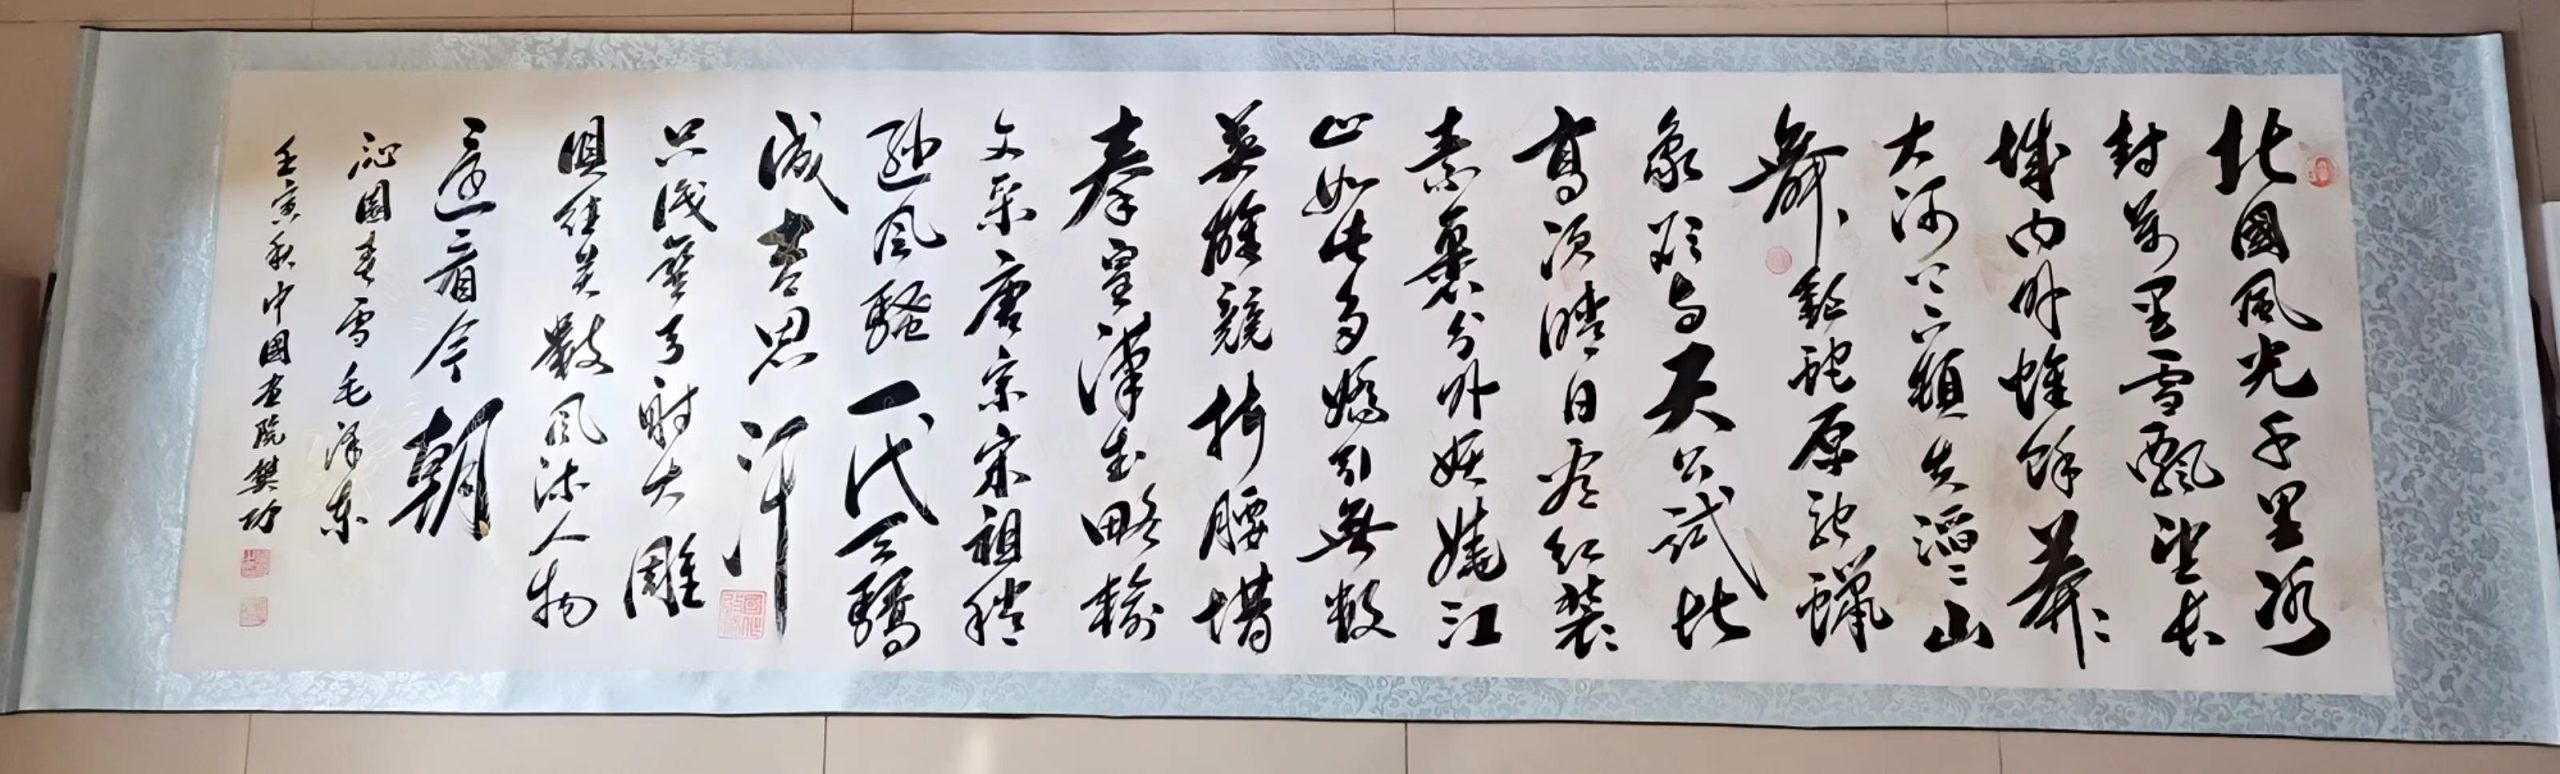 北國風光千里冰
封萬里雪飄望長
城內外惟餘莽〻
大河上下頓失滔〻山
舞銀蛇原馳蠟
象欲與天公試比
高須晴日看紅裝
素裹分外妖嬈江
山如此多嬌引無數
英雄競折腰惜
秦皇漢武略輸
文采唐宗宋祖稍
遜風騷一代天驕
成吉思汗
只識彎弓射大雕
俱往矣數風流人物
還看今朝
沁園春雪毛澤東
壬寅秋中國畫院樊